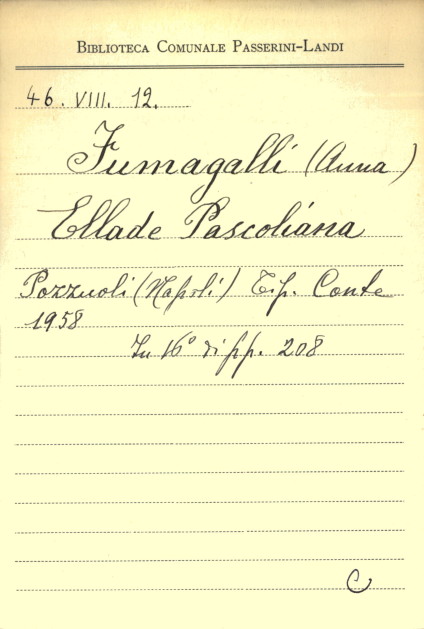 BIBLIOTECA COMUNALE PASSERINI-LANDI
46. VIII. 12.
Fumagalli (Anna)
Ellade Pascoliana
Pozzuoli (Napoli) Tip. Conte
1958
In 16° di pp. 208
C